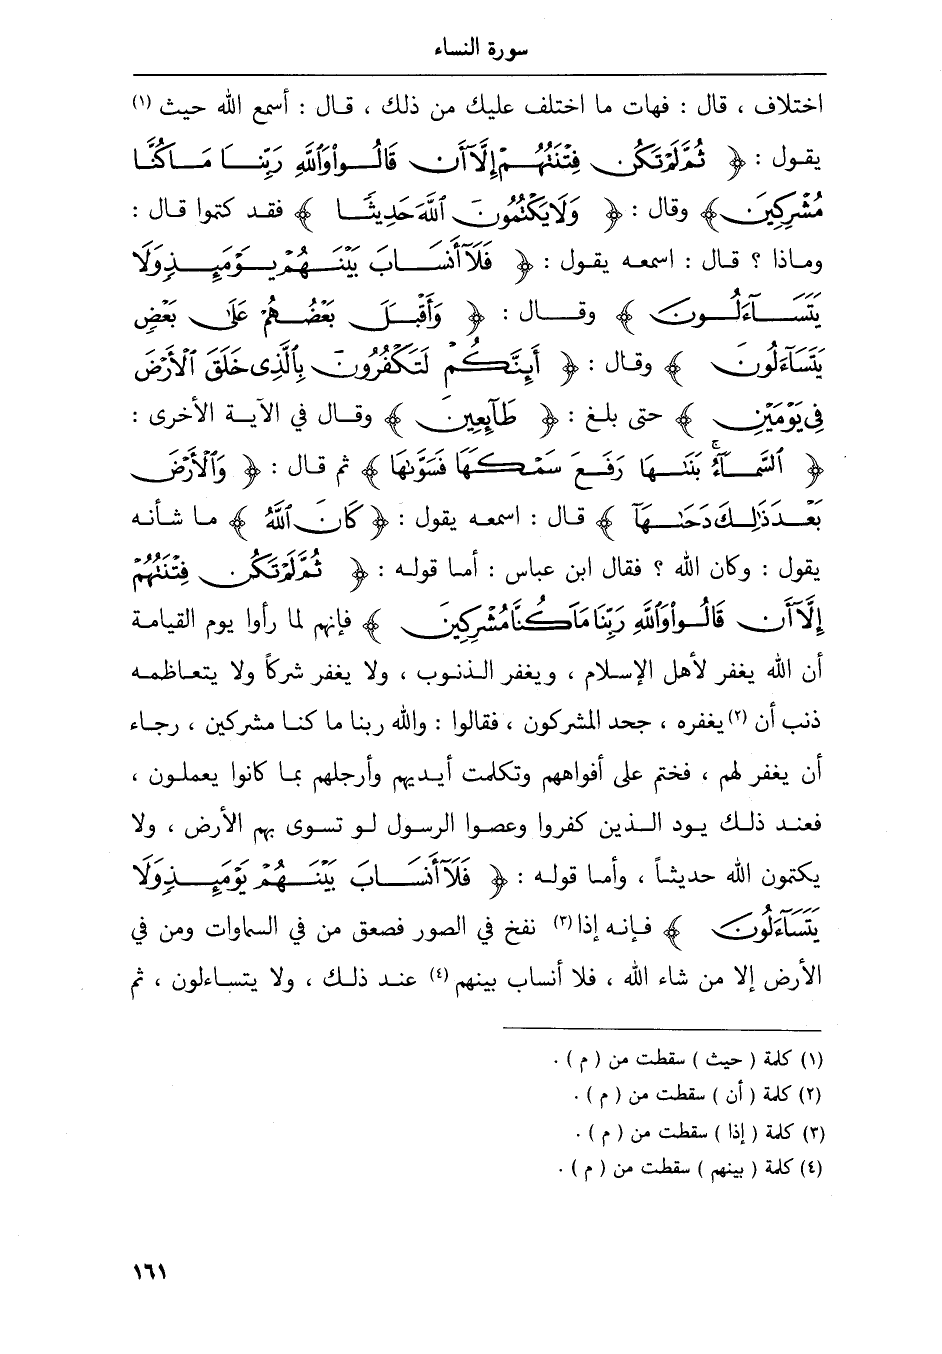 سورة النساء
اختلاف ، قال : فهات ما اختلف عليك من ذلك ، قال : أسمع الله حيث (١)
يقول : ﴿ ثُمَّ لَمْ تَكُن فِتْنَتُهُمْ إِلَّآ أَن قَالُوا۟ وَٱللَّهِ رَبِّنَا مَا كُنَّا
مُشْرِكِينَ ﴾ وقال : ﴿ وَلَا يَكْتُمُونَ ٱللَّهَ حَدِيثًا ﴾ فقد كتموا قال :
وماذا ؟ قال : اسمعه يقول : ﴿ فَلَآ أَنسَابَ بَيْنَهُمْ يَوْمَئِذٍ وَلَا
يَتَسَآءَلُونَ ﴾ وقال : ﴿ وَأَقْبَلَ بَعْضُهُمْ عَلَىٰ بَعْضٍ
يَتَسَآءَلُونَ ﴾ وقال : ﴿ أَئِنَّكُمْ لَتَكْفُرُونَ بِٱلَّذِى خَلَقَ ٱلْأَرْضَ
فِى يَوْمَيْنِ ﴾ حتى بلغ : ﴿ طَآئِعِينَ ﴾ وقال في الآية الأخرى :
﴿ ٱلسَّمَآءُ بَنَىٰهَا رَفَعَ سَمْكَهَا فَسَوَّىٰهَا ﴾ ثم قال : ﴿ وَٱلْأَرْضَ
بَعْدَ ذَٰلِكَ دَحَىٰهَآ ﴾ قال : اسمعه يقول : ﴿ كَانَ ٱللَّهُ ﴾ ما شأنه
يقول : وكان الله ؟ فقال ابن عباس : أما قوله : ﴿ ثُمَّ لَمْ تَكُن فِتْنَتُهُمْ
إِلَّآ أَن قَالُوا۟ وَٱللَّهِ رَبِّنَا مَا كُنَّا مُشْرِكِينَ ﴾ فإنهم لما رأوا يوم القيامة
أن الله يغفر لأهل الإسلام ، ويغفر الذنوب ، ولا يغفر شركاً ولا يتعاظمه
ذنب أن (٢) يغفره ، جحد المشركون ، فقالوا : والله ربنا ما كنا مشركين ، رجاء
أن يغفر لهم ، فختم على أفواههم وتكلمت أيديهم وأرجلهم بما كانوا يعملون ،
فعند ذلك يود الذين كفروا وعصوا الرسول لو تسوى بهم الأرض ، ولا
يكتمون الله حديثاً ، وأما قوله : ﴿ فَلَآ أَنسَابَ بَيْنَهُمْ يَوْمَئِذٍ وَلَا
يَتَسَآءَلُونَ ﴾ فإنه إذا (٣) نفخ في الصور فصعق من في السماوات ومن في
الأرض إلا من شاء الله ، فلا أنساب بينهم (٤) عند ذلك ، ولا يتساءلون ، ثم
(١) كلمة ( حيث ) سقطت من ( م ) .
(٢) كلمة ( أن ) سقطت من ( م ) .
(٣) كلمة ( إذا ) سقطت من ( م ) .
(٤) كلمة ( بينهم ) سقطت من ( م ) .
١٦١